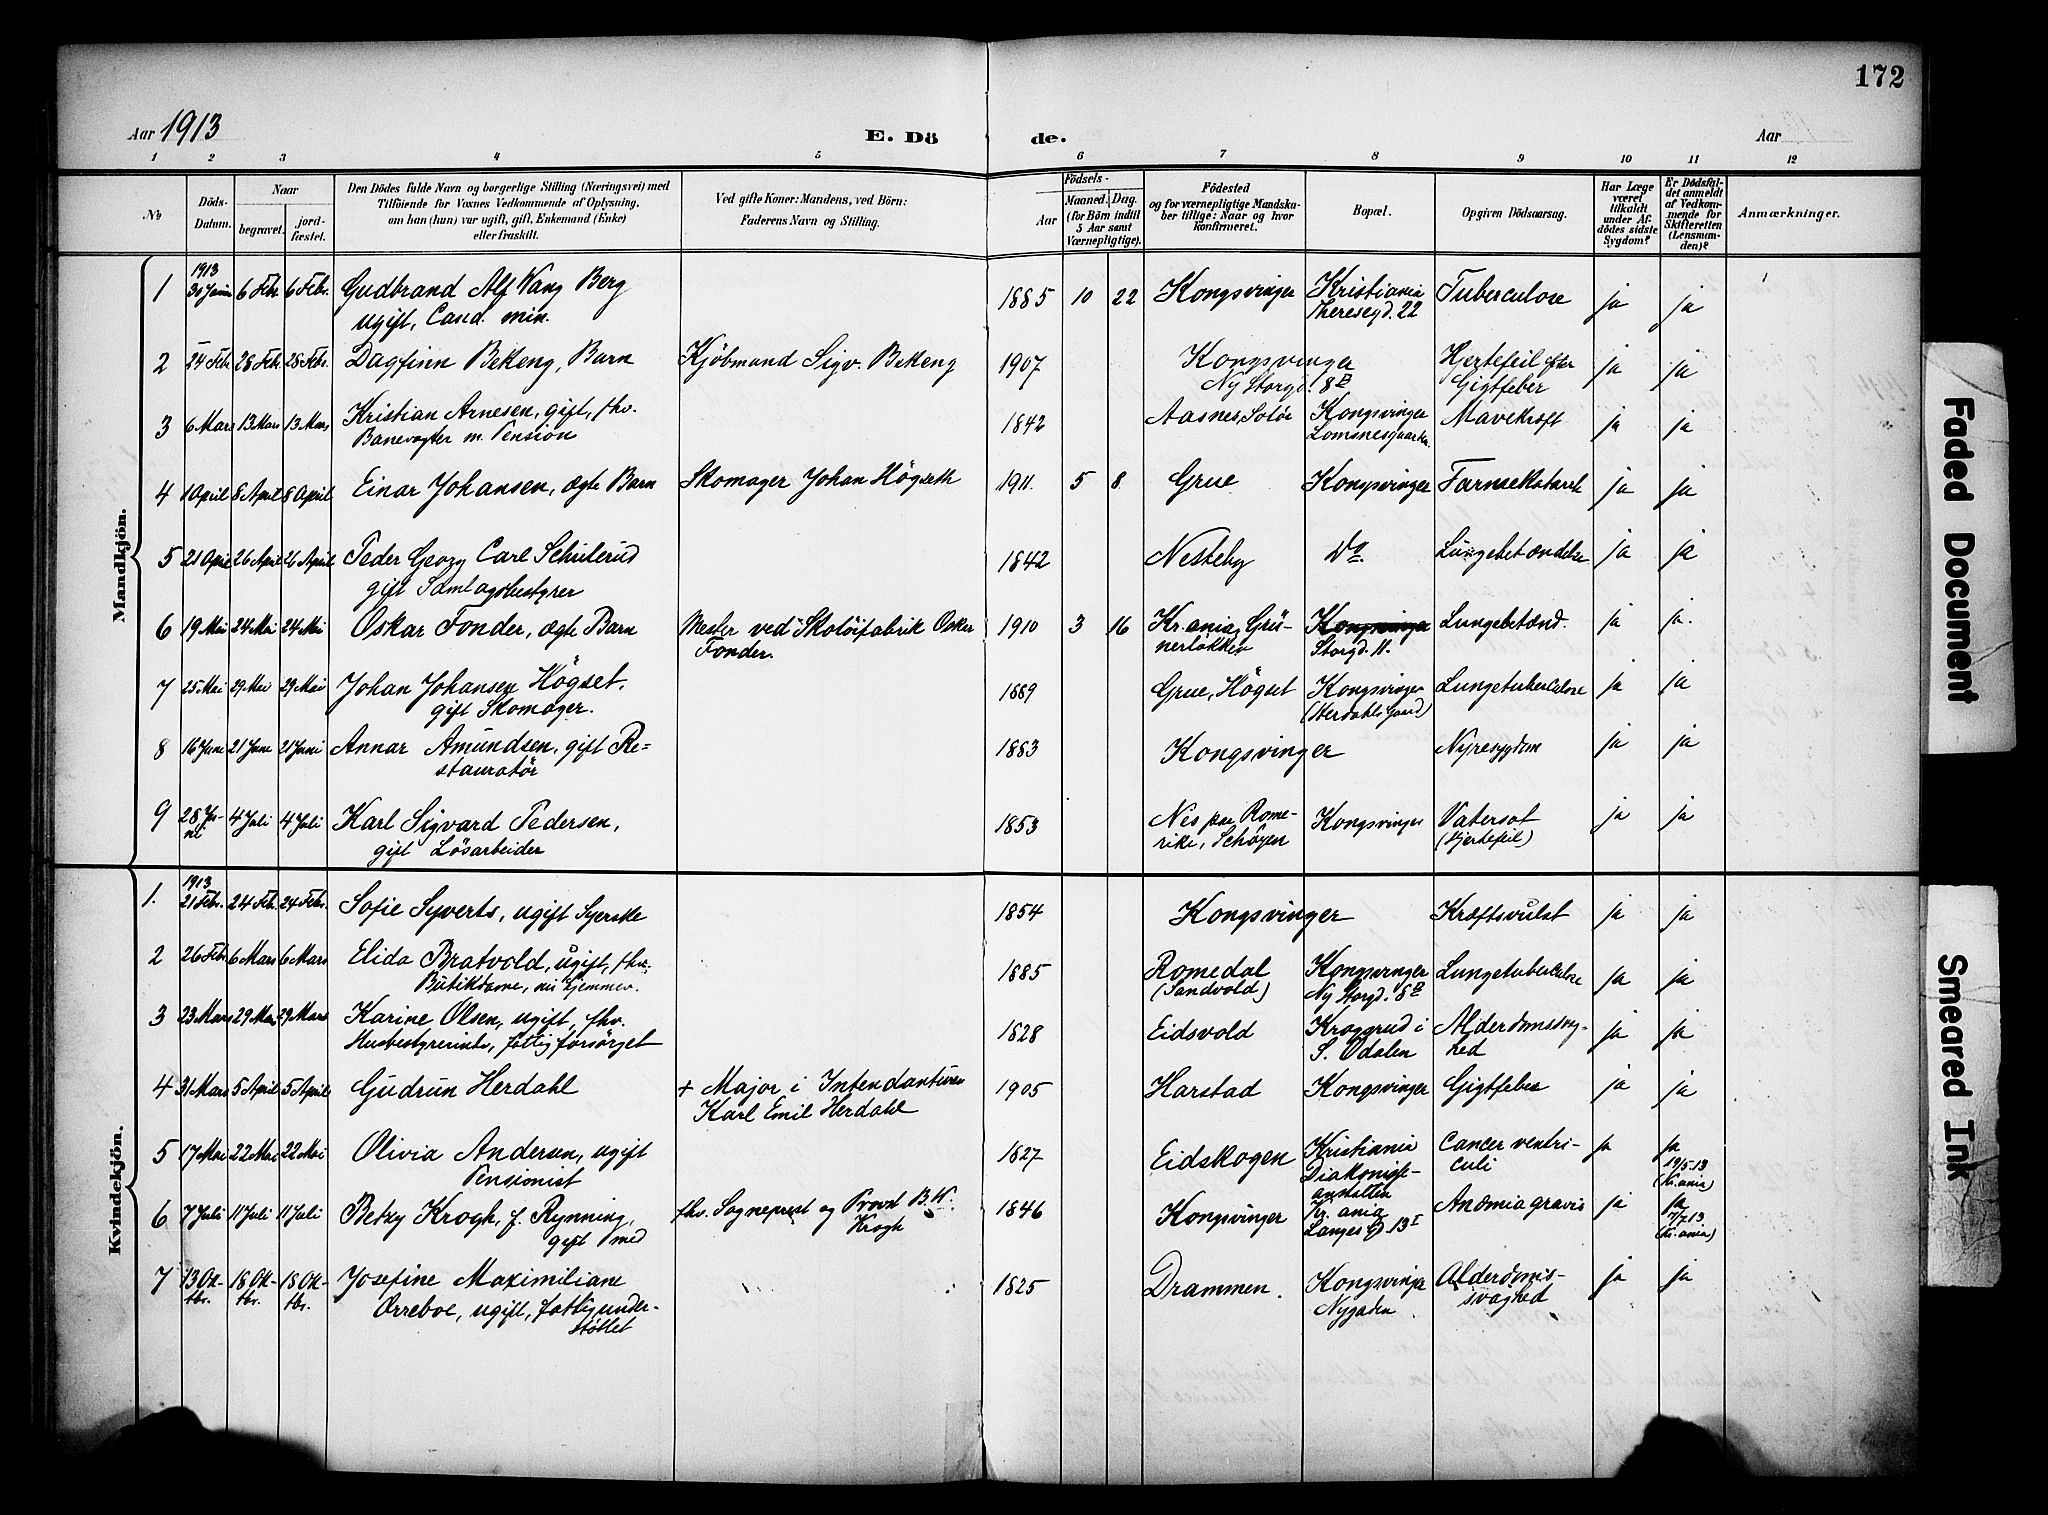 172
Aar 1913 E. Dö de. Aar
1 2 3 4 5 6 7 8 9 10 11 12
No Döds-Datum. Naar begravet. jordfæstet. Den Dödes fulde Navn og borgerlige Stilling (Næringsvei) med Tilföiende for Voxnes Vedkommende af Oplysning, om han (hun) var ugift, gift, Enkemand (Enke) eller fraskilt. Ved gifte Koner: Mandens, ved Börn: Faderens Navn og Stilling. Födsels- Aar Maaned. Dag. (for Börn indtil 5 Aar samt Værnepligtige). Födested og for værnepligtige Mandskaber tillige: Naar og hvor konfirmeret. Bopæl. Opgiven Dödsaarsag. Har Læge været tilkaldt under Afdödes sidste Sygdom? Er Dødsfaldet anmeldt af Vedkommende for Skifteretten (Lensmanden)? Anmærkninger.
Mandkjön.
1 1913 30 Janu 6 Febr 6 Febr. Gudbrand Alf Wang Berg 1885 10 22 Kongsvinger Kristiania Tuberculose ja ja
ugift, Cand. min. Theresegd. 22
2 24 Febr 28 Febr 28 Febr. Dagfinn Bekeng, Barn Kjöbmand Sigv. Bekeng 1907 Kongsvinger Hjertefeil efter ja ja
Ny Storgd. 8B Gigtfeber
3 6 Mars 13 Mars 13 Mars Kristian Arnesen, gift, fhv. 1842 Aasnes Solör Kongsvinger Mavekræft ja ja
Banevogter m. Pension
4 1 April 8 April 8 April Einar Johansen, ægte Barn Skomager Johan Högseth 1911. 5 8 Grue Kongsvinger Tarmekatarrh ja ja
5 21 April 26 April 26 April Peder Georg Carl Schulerud 1842 Nesteby Do. Lungebetændelse ja ja
gift Samlagsbestyrer
6 19 Mai 24 Mai 24 Mai Oskar Fonder, ægte Barn Mester ved Skotöifabrik Oskar 1910 3 16 Kr.ania, Grü- Kongsvinger Lungebetænd. ja ja.
Fonder. nerløkken Storgd. 11.
7 25 Mai 29 Mai 29 Mai Johan Johansen Högset, 1889 Grue, Högset Kongsvinger Lungetuberculose ja ja
gift Skomager. (Herdahls Gaard)
8 16 Juni 21 Juni 21 Juni Annar Amundsen, gift Re- 1883 Kongsvinger Nyresygdom ja ja
stauratör
9 28 Ju- 4 Juli 4 Juli Karl Sigvard Pedersen, 1853 Nes paa Rome- Kongsvinger Vatersot ja ja
ni gift Lösarbeider rike, Schöyen (Hjertefeil)
Kvindekjön.
1. 1913 21 Febr. 24 Febr. 24 Febr. Sofie Syverts, ugift Syerske 1854 Kongsvinger Kræftsvulst ja ja
2 26 Febr 6 Mars 6 Mars Elida Bratvold, ugift, fhv. 1885 Romedal Kongsvinger Lungetuberculose ja ja
Butikdame, nu hjemmev. (Sandvold) Ny Storgd. 8B
3 23 Mars 29 Mars 29 Mars Karine Olsen, ugift, fhv. 1828 Eidsvold Kroggrud i Alderdomssvag- ja ja
Husbestyrerinde, fattigforsörget S. Odalen hed
4 31 Mars 5 April 5 April Gudrun Herdahl + Major i Intendanturen 1905 Harstad Kongsvinger Gigtfeber ja ja
Karl Emil Herdahl
5 17 Mai 22 Mai 22 Mai Olivia Andersen, ugift 1827 Eidskogen Kristiania Cancer ventri- ja ja
Pensionist Diakonisse- culi 19/5-13
anstalten (Kr.ania)
6 7 Juli 11 Juli 11 Juli Betzy Krogh, f. Rynning, fhv. Sogneprest og Provst B.W. 1846 Kongsvinger Kr.ania Anæmia gravis ja ja
gift med Krogh Langes Gd. 13 I 7/7 13
(Kr.ania)
7 13 Ok- 18 Ok- 18 Ok- Josefine Maximiliane 1825 Drammen. Kongsvinger Alderdoms- ja ja
tbr. tbr. tbr. Orreboe, ugift, fattigunder- Nygaden svaghed
støttet
Faded Document
Smeared Ink